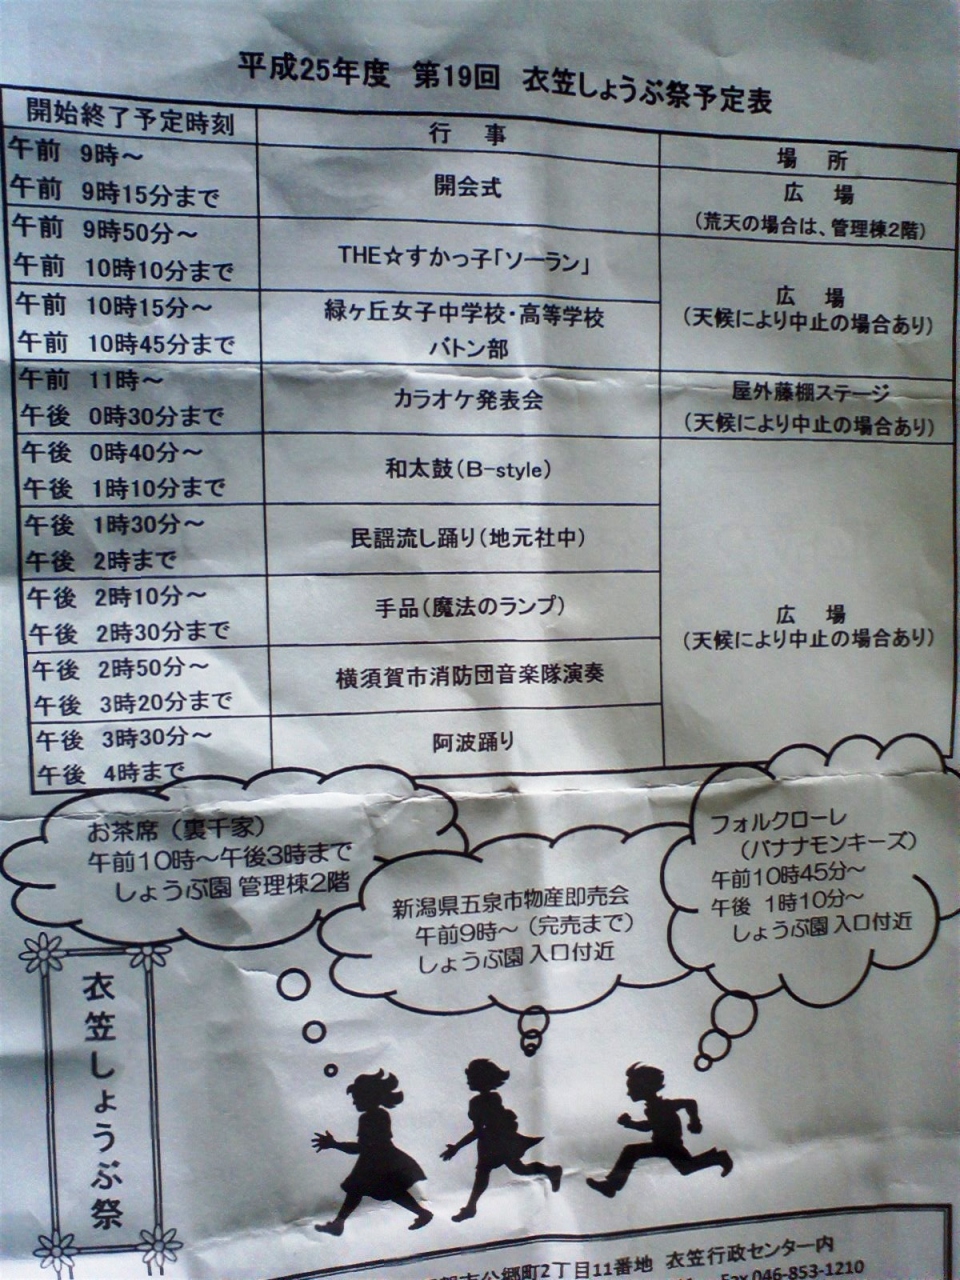 平成25年度　第19回　衣笠しょうぶ祭予定表
開始終了予定時刻　行　事　場　所
午前　9時～
午前　9時15分まで
開会式
広　場
(荒天の場合は、管理棟2階)
午前　9時50分～
午前　10時10分まで
THE☆すかっ子「ソーラン」
午前　10時15分～
午前　10時45分まで
緑ヶ丘女子中学校・高等学校
バトン部
広　場
(天候により中止の場合あり)
午前　11時～
午後　0時30分まで
カラオケ発表会
屋外藤棚ステージ
(天候により中止の場合あり)
午後　0時40分～
午後　1時10分まで
和太鼓(B-style)
午後　1時30分～
午後　2時まで
民謡流し踊り(地元社中)
午後　2時10分～
午後　2時30分まで
手品(魔法のランプ)
広　場
(天候により中止の場合あり)
午後　2時50分～
午後　3時20分まで
横須賀市消防団音楽隊演奏
午後　3時30分～
午後　4時まで
阿波踊り
お茶席（裏千家）
午前10時～午後3時まで
しょうぶ園 管理棟2階
新潟県五泉市物産即売会
午前9時～（完売まで）
しょうぶ園 入口付近
フォルクローレ
（バナナモンキーズ）
午前10時45分～
午後　1時10分～
しょうぶ園 入口付近
衣笠しょうぶ祭
市公郷町2丁目11番地　衣笠行政センター内
Fax 046-853-1210